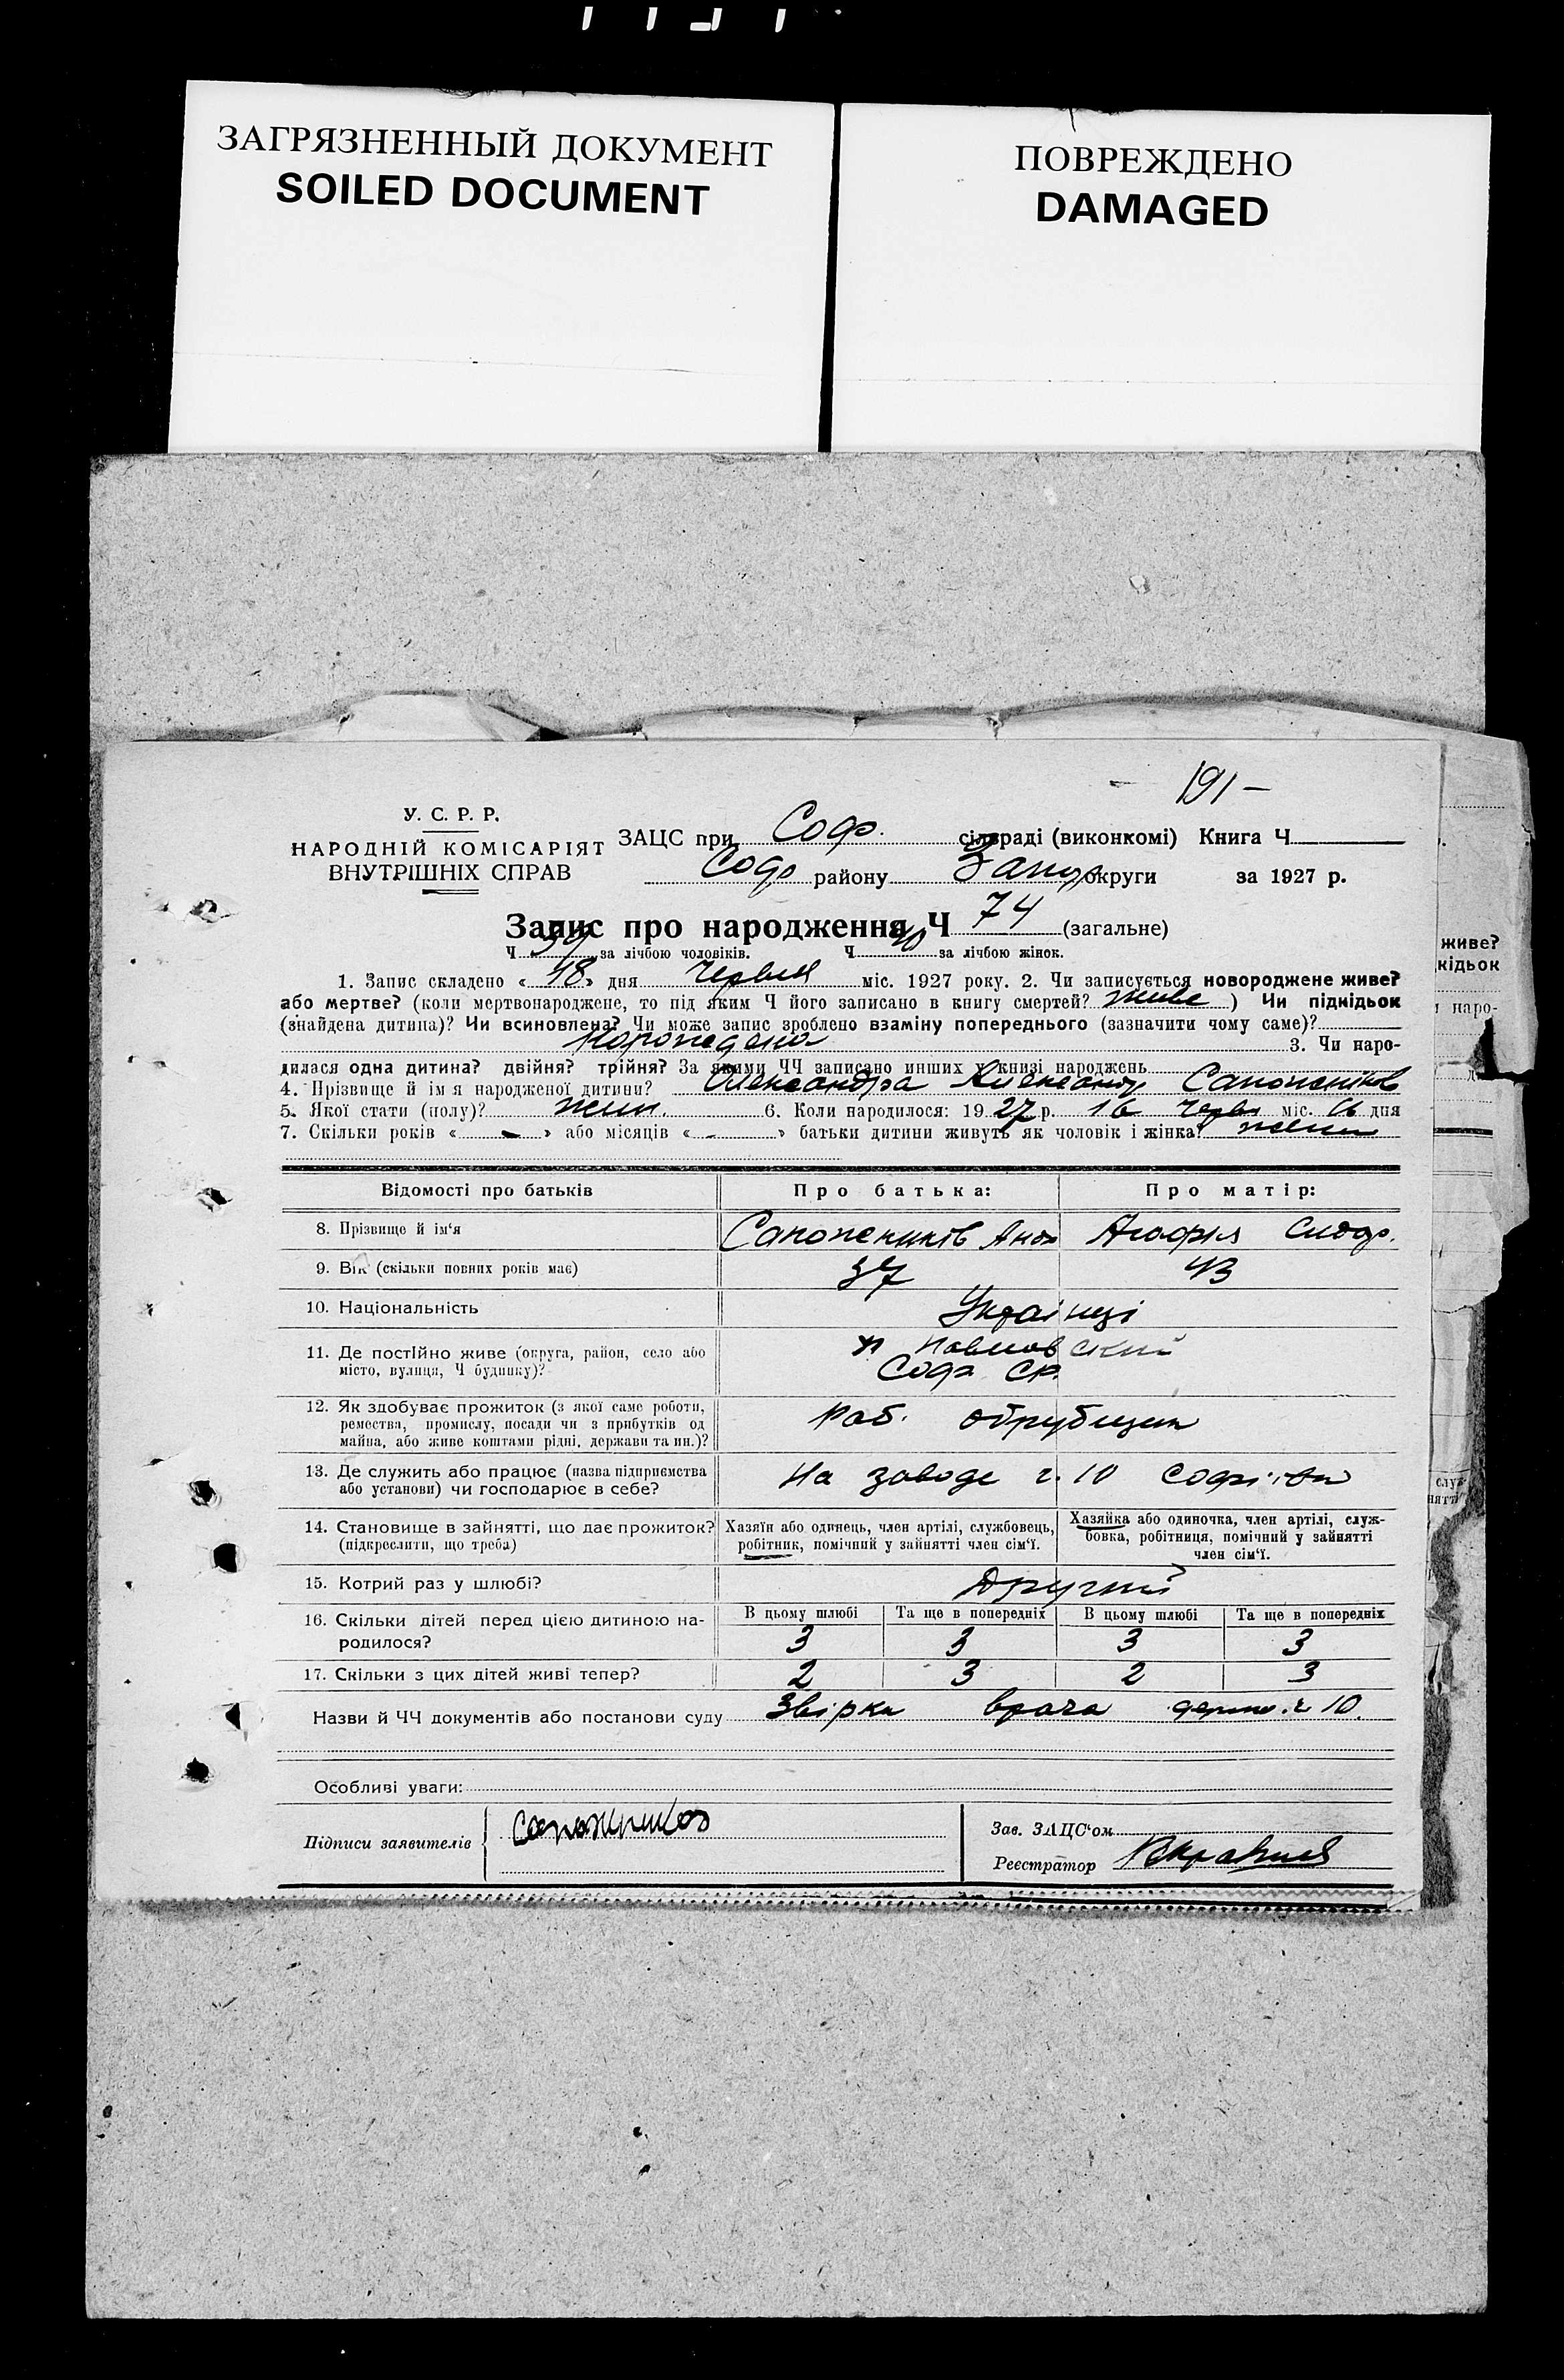 ЗАГРЯЗНЕННЫЙ ДОКУМЕНТ
SOILED DOCUMENT
ПОВРЕЖДЕНО
DAMAGED
- 191 -
У. С. Р. Р.
НАРОДНІЙ КОМІСАРІЯТ
ВНУТРІШНІХ СПРАВ
ЗАЦС при Соф. сільраді (виконкомі) Книга Ч
Соф району Запор округи за 1927 р.
Запис про народження Ч 74 (загальне)
Ч за лічбою чоловіків. Ч 40 за лічбою жінок.
1. Запис складено « 18 » дня Червня міс. 1927 року. 2. Чи записується новороджене живе?
або мертве? (коли мертвонароджене, то під яким Ч його записано в книгу смертей? живе ) Чи підкідьок
(знайдена дитина)? Чи всиновлена? Чи може запис зроблено взаміну попереднього (зазначити чому саме)?
3. Чи наро-
дилася одна дитина? двійня? трійня? За якими ЧЧ записано инших у книзі народжень
4. Прізвище й ім я народженої дитини? Олександра Александр Сапожніков
5. Якої стати (полу)? жін. 6. Коли народилося: 19 27 р. 16 Черв міс. 16 дня
7. Скільки років « - » або місяців « - » батьки дитини живуть як чоловік і жінка?
Відомості про батьків Про батька: Про матір:
8. Прізвище й ім‘я Сапожників Агафія Сидор.
9. Вік (скільки повних років має) 37 43
10. Національність Українці
11. Де постійно живе (округа, район, село або
місто, вулиця, Ч будинку)?
Соф. ср.
12. Як здобуває прожиток (з якої саме роботи,
ремества, промислу, посади чи з прибутків од
майна, або живе коштами рідні, держави та ин.)?
Раб. обрубщик
13. Де служить або працює (назва підприємства
або установи) чи господарює в себе?
На заводе ч. 10 Софіївки
14. Становище в зайнятті, що дає прожиток?
(підкреслити, що треба)
Хазяїн або одинець, член артілі, службовець,
робітник, помічний у зайнятті член сім‘ї.
Хазяйка або одиночка, член артілі, служ-
бовка, робітниця, помічний у зайнятті
член сім‘ї.
15. Котрий раз у шлюбі? Другий
16. Скільки дітей перед цією дитиною на-
родилося?
В цьому шлюбі Та ще в попередніх В цьому шлюбі Та ще в попередніх
3 3 3 3
17. Скільки з цих дітей живі тепер? 2 3 2 3
Назви й ЧЧ документів або постанови суду врача ч 10.
Особливі уваги:
Підписи заявителів Сапожников
Зав. ЗАЦС‘ом
Реєстратор
живе?
кідьок
наро-
служ-